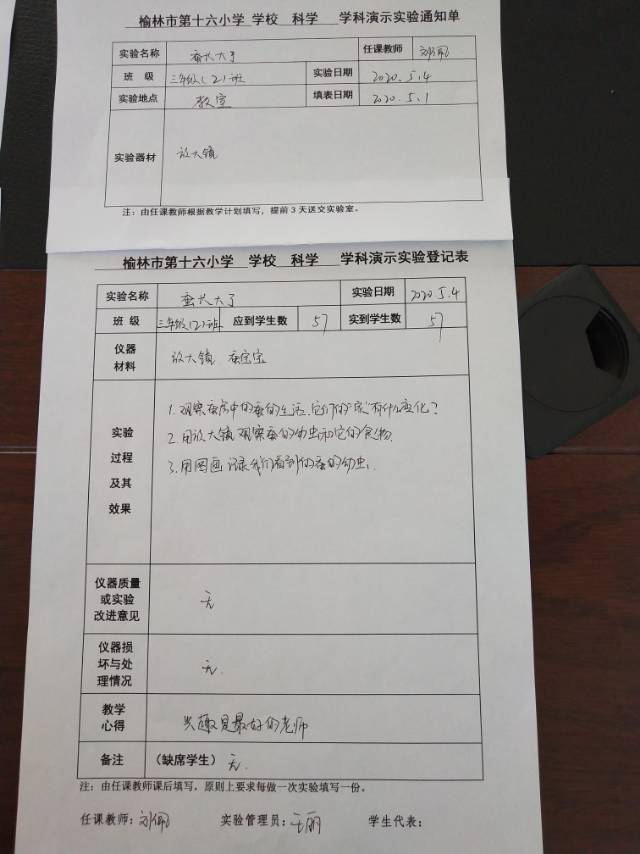 榆林市第十六小学 学校 科学 学科演示实验通知单
实验名称 蚕长大了 任课教师 刘佩
班 级 三年级(2)班 实验日期 2020.5.4
实验地点 教室 填表日期 2020.5.1
实验器材 放大镜
注：由任课教师根据教学计划填写，提前3天送交实验室。
榆林市第十六小学 学校 科学 学科演示实验登记表
实验名称 蚕长大了 实验日期 2020.5.4
班 级 三年级(2)班 应到学生数 57 实到学生数 57
仪器
材料
放大镜 蚕宝宝
实验
过程
及其
效果
1.观察蚕房中的蚕的生活,它们的"家"有什么变化?
2.用放大镜观察蚕的幼虫和它的食物.
3.用图画记录我们看到的蚕的幼虫.
仪器质量
或实验
改进意见
无
仪器损
坏与处
理情况
无.
教学
心得
兴趣是最好的老师
备注 （缺席学生）无.
注：由任课教师课后填写，原则上要求每做一次实验填写一份。
任课教师：刘佩 实验管理员：王丽 学生代表：